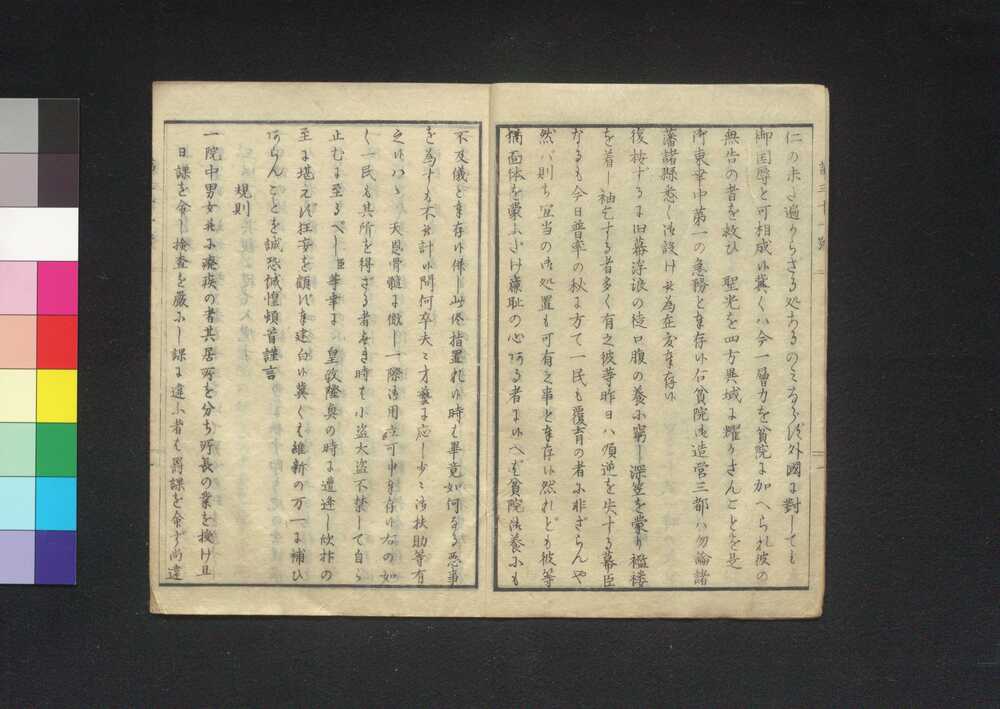 仁の未た遍からさる処あるのミならす外國に對しても
御国辱と可相成候冀くハ今一層力を貧院に加へられ彼の
無告の者を救ひ 聖光を四方異域に燿かさんことを是
御東幸中第一の急務と奉存候右貧院御造営三都ハ勿論諸
藩諸縣悉く御設け被為在度奉存候
復按するに旧幕浮浪の徒口腹の養に窮し深笠を蒙り襤褸
を着し袖乞する者多く有之彼等昨日ハ順逆を失する幕臣
なるも今日普率の秋に方て一民も覆育の者に非さらんや
然バ則ち宜当の御処置も可有之事と奉存候然れとも彼等
猶面体を蒙ふたけ廉恥の心ある者に候へば貧院御養にも
不及儀と奉存候併し此侭措置れ候時も畢竟如何なる悪事
を為すも不被計候間何卒夫々才藝に応し少々御扶助等有
之候ハヽ 天恩骨髄に徹し一際御用立可申奉存候右の如
く一民も其所を得さる者なき時も小盗大盗不禁して自ら
止むに至るべし臣等幸に 皇政隆奥の時に遭逢し欣抃の
至に堪えず狂妄を顧ず奉建白候冀くも維新の万一に補ひ
あらんことを誠恐誠惶頓首謹言
規則
一院中男女并に癈疾の者其居所を分ち所長の業を授け且
日課を命し検査を厳にし課に違ふ者も罰課を命ず尚違